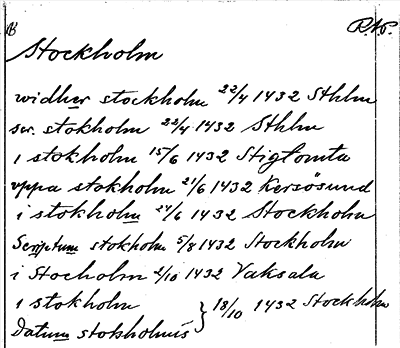 Stockholm
widher stockholm 22/4 1432 Sthlm
scr. stokholm 22/4 1432 Sthlm
i stokholm 15/6 1432 Stigtomta
vppa stokholm 21/6 1432 Kersösund
i stokholm 24/6 1432 Stockholm
Scriptum stokholm 5/8 1432 Stockholm
i Stocholm 2/10 1432 Vaksala
i stokholm } 18/10 1432 Stockholm
datum stokholmis